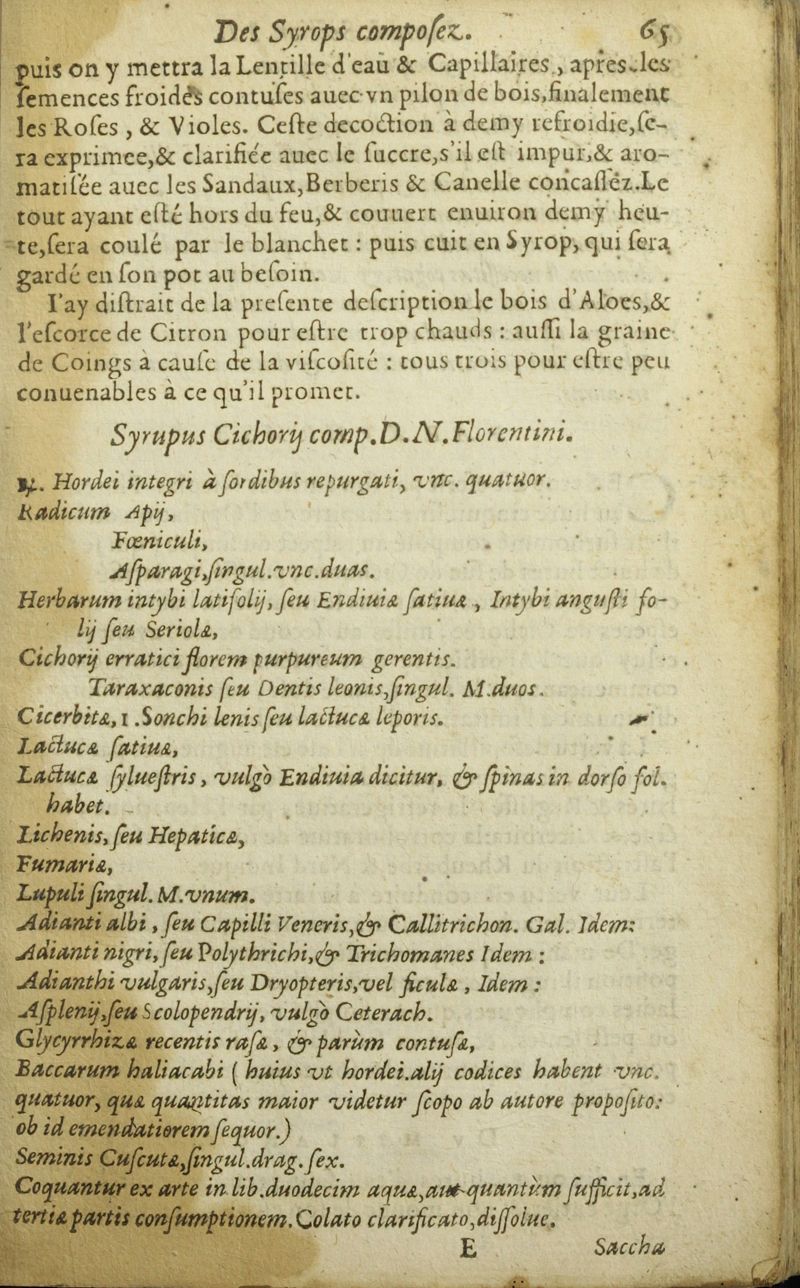 Des Syrops compoſez. 65
puis on y mettra la Lentille d'eau & Capillaires, apres les
ſemences froides contuſes auec vn pilon de bois, finalement
les Roſes, & Violes. Ceſte decoction à demy refroidie, ſe-
ra exprimee, & clarifiée auec le ſuccre, s'il eſt impur, & aro-
matiſée auec les Sandaux, Berberis & Canelle concaſſéz. Le
tout ayant eſté hors du feu, & couuert enuiron demy heu-
te, ſera coulé par le blanchet : puis cuit en Syrop, qui ſera
gardé en ſon pot au beſoin.
I'ay diſtrait de la preſente deſcription le bois d'Aloes, &
l'eſcorce de Citron pour eſtre trop chauds : auſſi la graine
de Coings à cauſe de la viſcoſité : tous trois pour eſtre peu
conuenables à ce qu'il promet.
Syrupus Cichorij comp. D. N. Florentini.
℞. Hordei integri à ſordibus repurgati, vnc. quatuor.
Radicum Apij,
Fœniculi,
Aſparagi, ſingul. vnc. duas.
Herbarum intybi latifolij, ſeu Endiuiæ ſatiuæ, Intybi anguſti fo-
lij ſeu Seriolæ,
Cichorij erratici florem purpureum gerentis.
Taraxaconis ſeu Dentis leonis, ſingul. M. duos.
Cicerbitæ, 1. Sonchi lenis ſeu lactucæ leporis.
Lactucæ ſatiuæ,
Lactucæ ſylueſtris, vulgò Endiuia dicitur, & ſpinas in dorſo fol.
habet.
Lichenis, ſeu Hepaticæ,
Fumariæ,
Lupuli ſingul. M. vnum.
Adianti albi, ſeu Capilli Veneris, & Callitrichon. Gal. Idem:
Adianti nigri, ſeu Polythrichi, & Trichomanes Idem :
Adianthi vulgaris, ſeu Dryopteris, vel ficulæ, Idem :
Aſplenij, ſeu Scolopendrij, vulgò Ceterach.
Glycyrrhizæ recentis raſæ, & parùm contuſæ,
Baccarum haliacabi ( huius vt hordei. alij codices habent vnc.
quatuor, quæ quantitas maior videtur ſcopo ab autore propoſito:
ob id emendatiorem ſequor.)
Seminis Cuſcutæ, ſingul. drag. ſex.
Coquantur ex arte in lib. duodecim aquæ, aut quantùm ſufficit, ad
tertiæ partis conſumptionem. Colato clarificato, diſſolue.
E Saccha